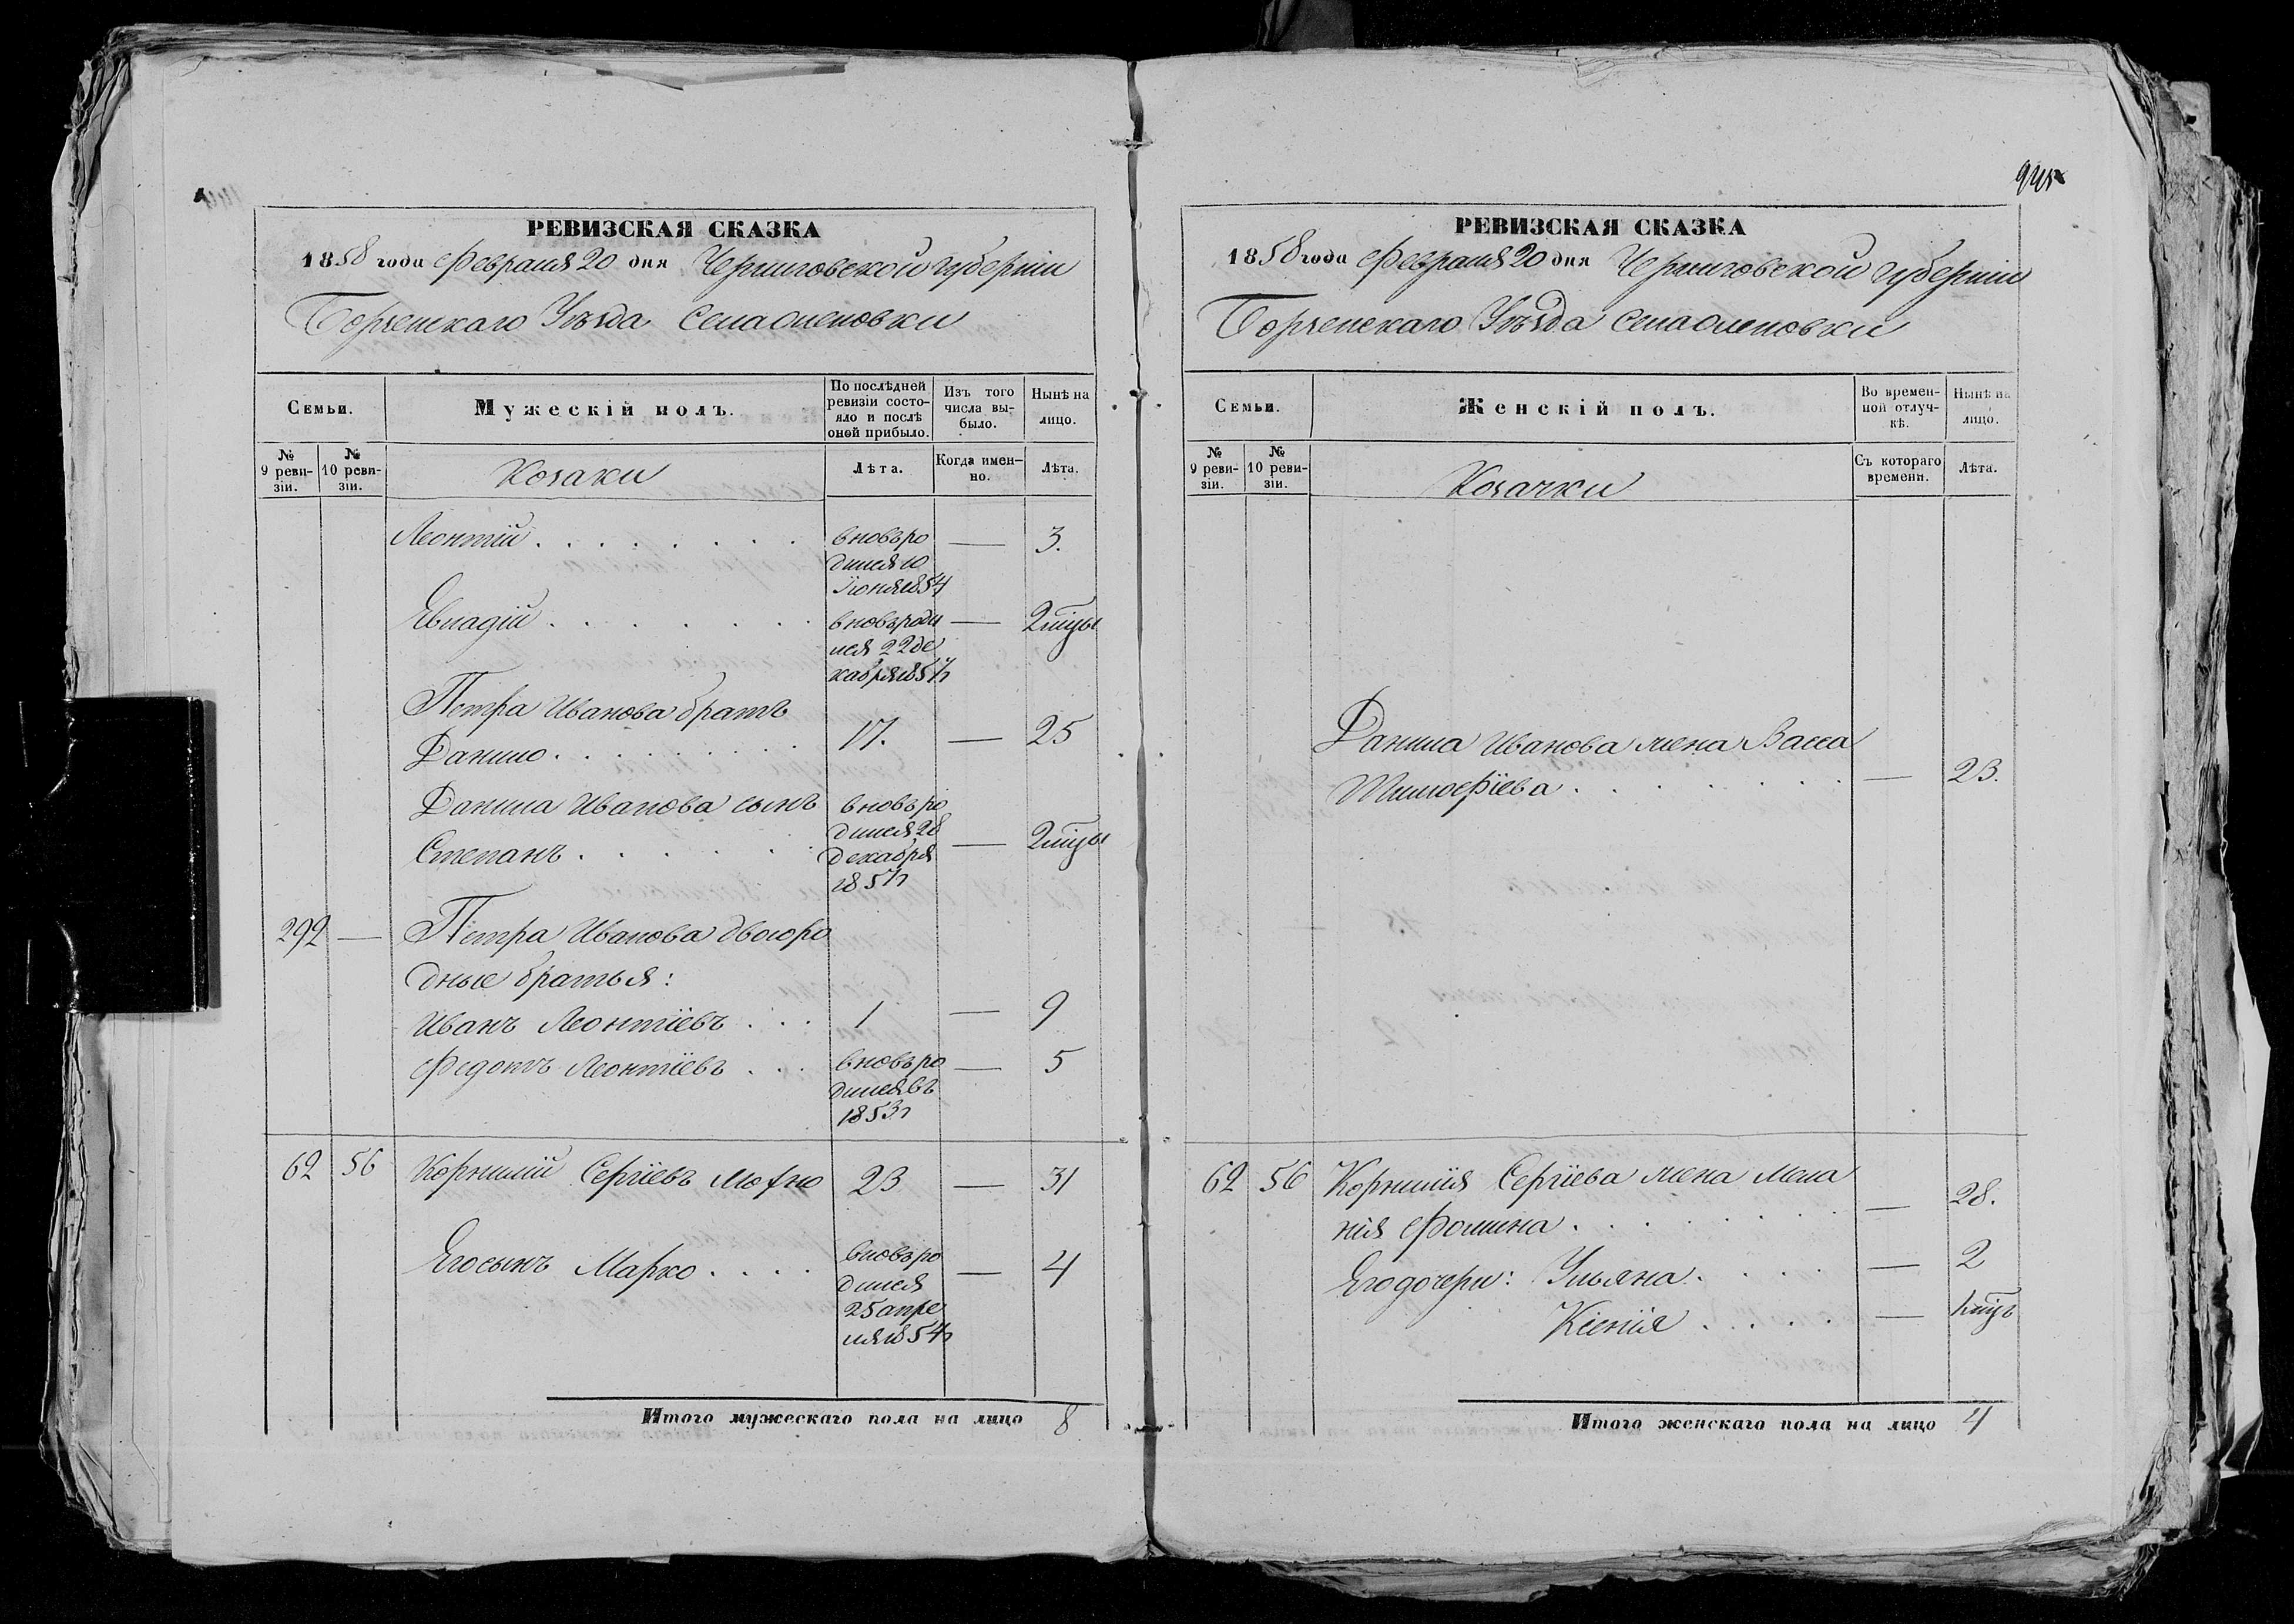 945
РЕВИЗСКАЯ СКАЗКА
1858 года Февраля 20 дня Черниговской губерніи
Борзенскаго Уѣзда Села Оленовки
Семьи.
Мужескій полъ.
По послѣдней ревизіи состояло и послѣ оной прибыло.
Изъ того числа выбыло.
Нынѣ на лицо.
№ 9 ревизіи.
№ 10 ревизіи.
Козаки
Лѣта.
Когда именно.
Лѣта.
Леонтій . . . вновь ро — 3.
дился 10
Іюня 1854
Евладій . . . вновь роди — 2 мцы
лся 22 де
кабря 1857
Петра Иванова братъ
Данило . . . 17. — 25
Данила Иванова сынъ вновь ро
дился 28
Степанъ . . . декабря — 2 мцы
1857
292 — Петра Иванова двоюро
дные братья:
Иванъ Леонтіевъ . . . 1 — 9
Федотъ Леонтіевъ . . . вновь ро — 5
дился въ
1853
62 56 Корнилій Сергіевъ 23 — 31
Его сынъ Марко . . . вновь ро — 4
дился
25 апре
ля 1854
Итого мужескаго пола на лицо 8
РЕВИЗСКАЯ СКАЗКА
1858 года Февраля 20 дня Черниговской губерніи
Борзенскаго Уѣзда Села Оленовки
Семьи.
Женскій полъ.
Во временной отлучкѣ.
Нынѣ на лицо.
№ 9 ревизіи.
№ 10 ревизіи.
Козачки
Съ котораго времени.
Лѣта.
Данила Иванова жена Васса
Тимофіева . . . — 23.
62 56 Корнилія Сергіева жена Мела
нія Фомина . . . — 28.
Его дочери: Ульяна . . . — 2
Ксенія . . . — 1 мцъ
Итого женскаго пола на лицо 4